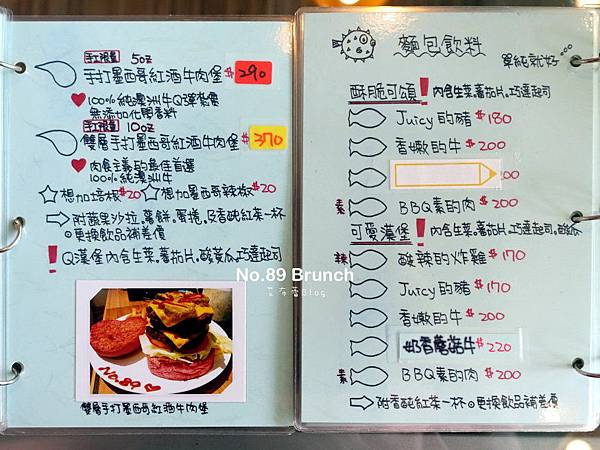 手工限量 5oz
手打墨西哥紅酒牛肉堡 $290
100%純澳洲牛Q彈紮實
無添加化閞香料
手工限量 10oz
雙層手打墨西哥紅酒牛肉堡 $370
肉食主義的最佳首選
100%純澳洲牛
想加培根$20 想加墨西哥辣椒$20
附蘋果沙拉.薯餅.蛋捲.及香純紅茶一杯
更換飲品補差價
Q漢堡內含生菜.蕃茄片.酸菜瓜.巧達起司
No.89 Brunch
Blog
No.89
雙層手打墨西哥紅酒牛肉堡
麵包飲料
單純就好...
酥脆可頌 ! 內含生菜.蕃茄片.巧達起司
Juicy的豬 $180
香嫩的牛 $200
00
素 BBQ素的肉 $200
可愛漢堡 ! 內含生菜.蕃茄片.巧達起司.酸瓜
辣 酸辣的炸雞 $170
Juicy的豬 $170
香嫩的牛 $200
奶香蘑菇牛 $220
素 BBQ素的肉 $200
附香純紅茶一杯 更換飲品補差價